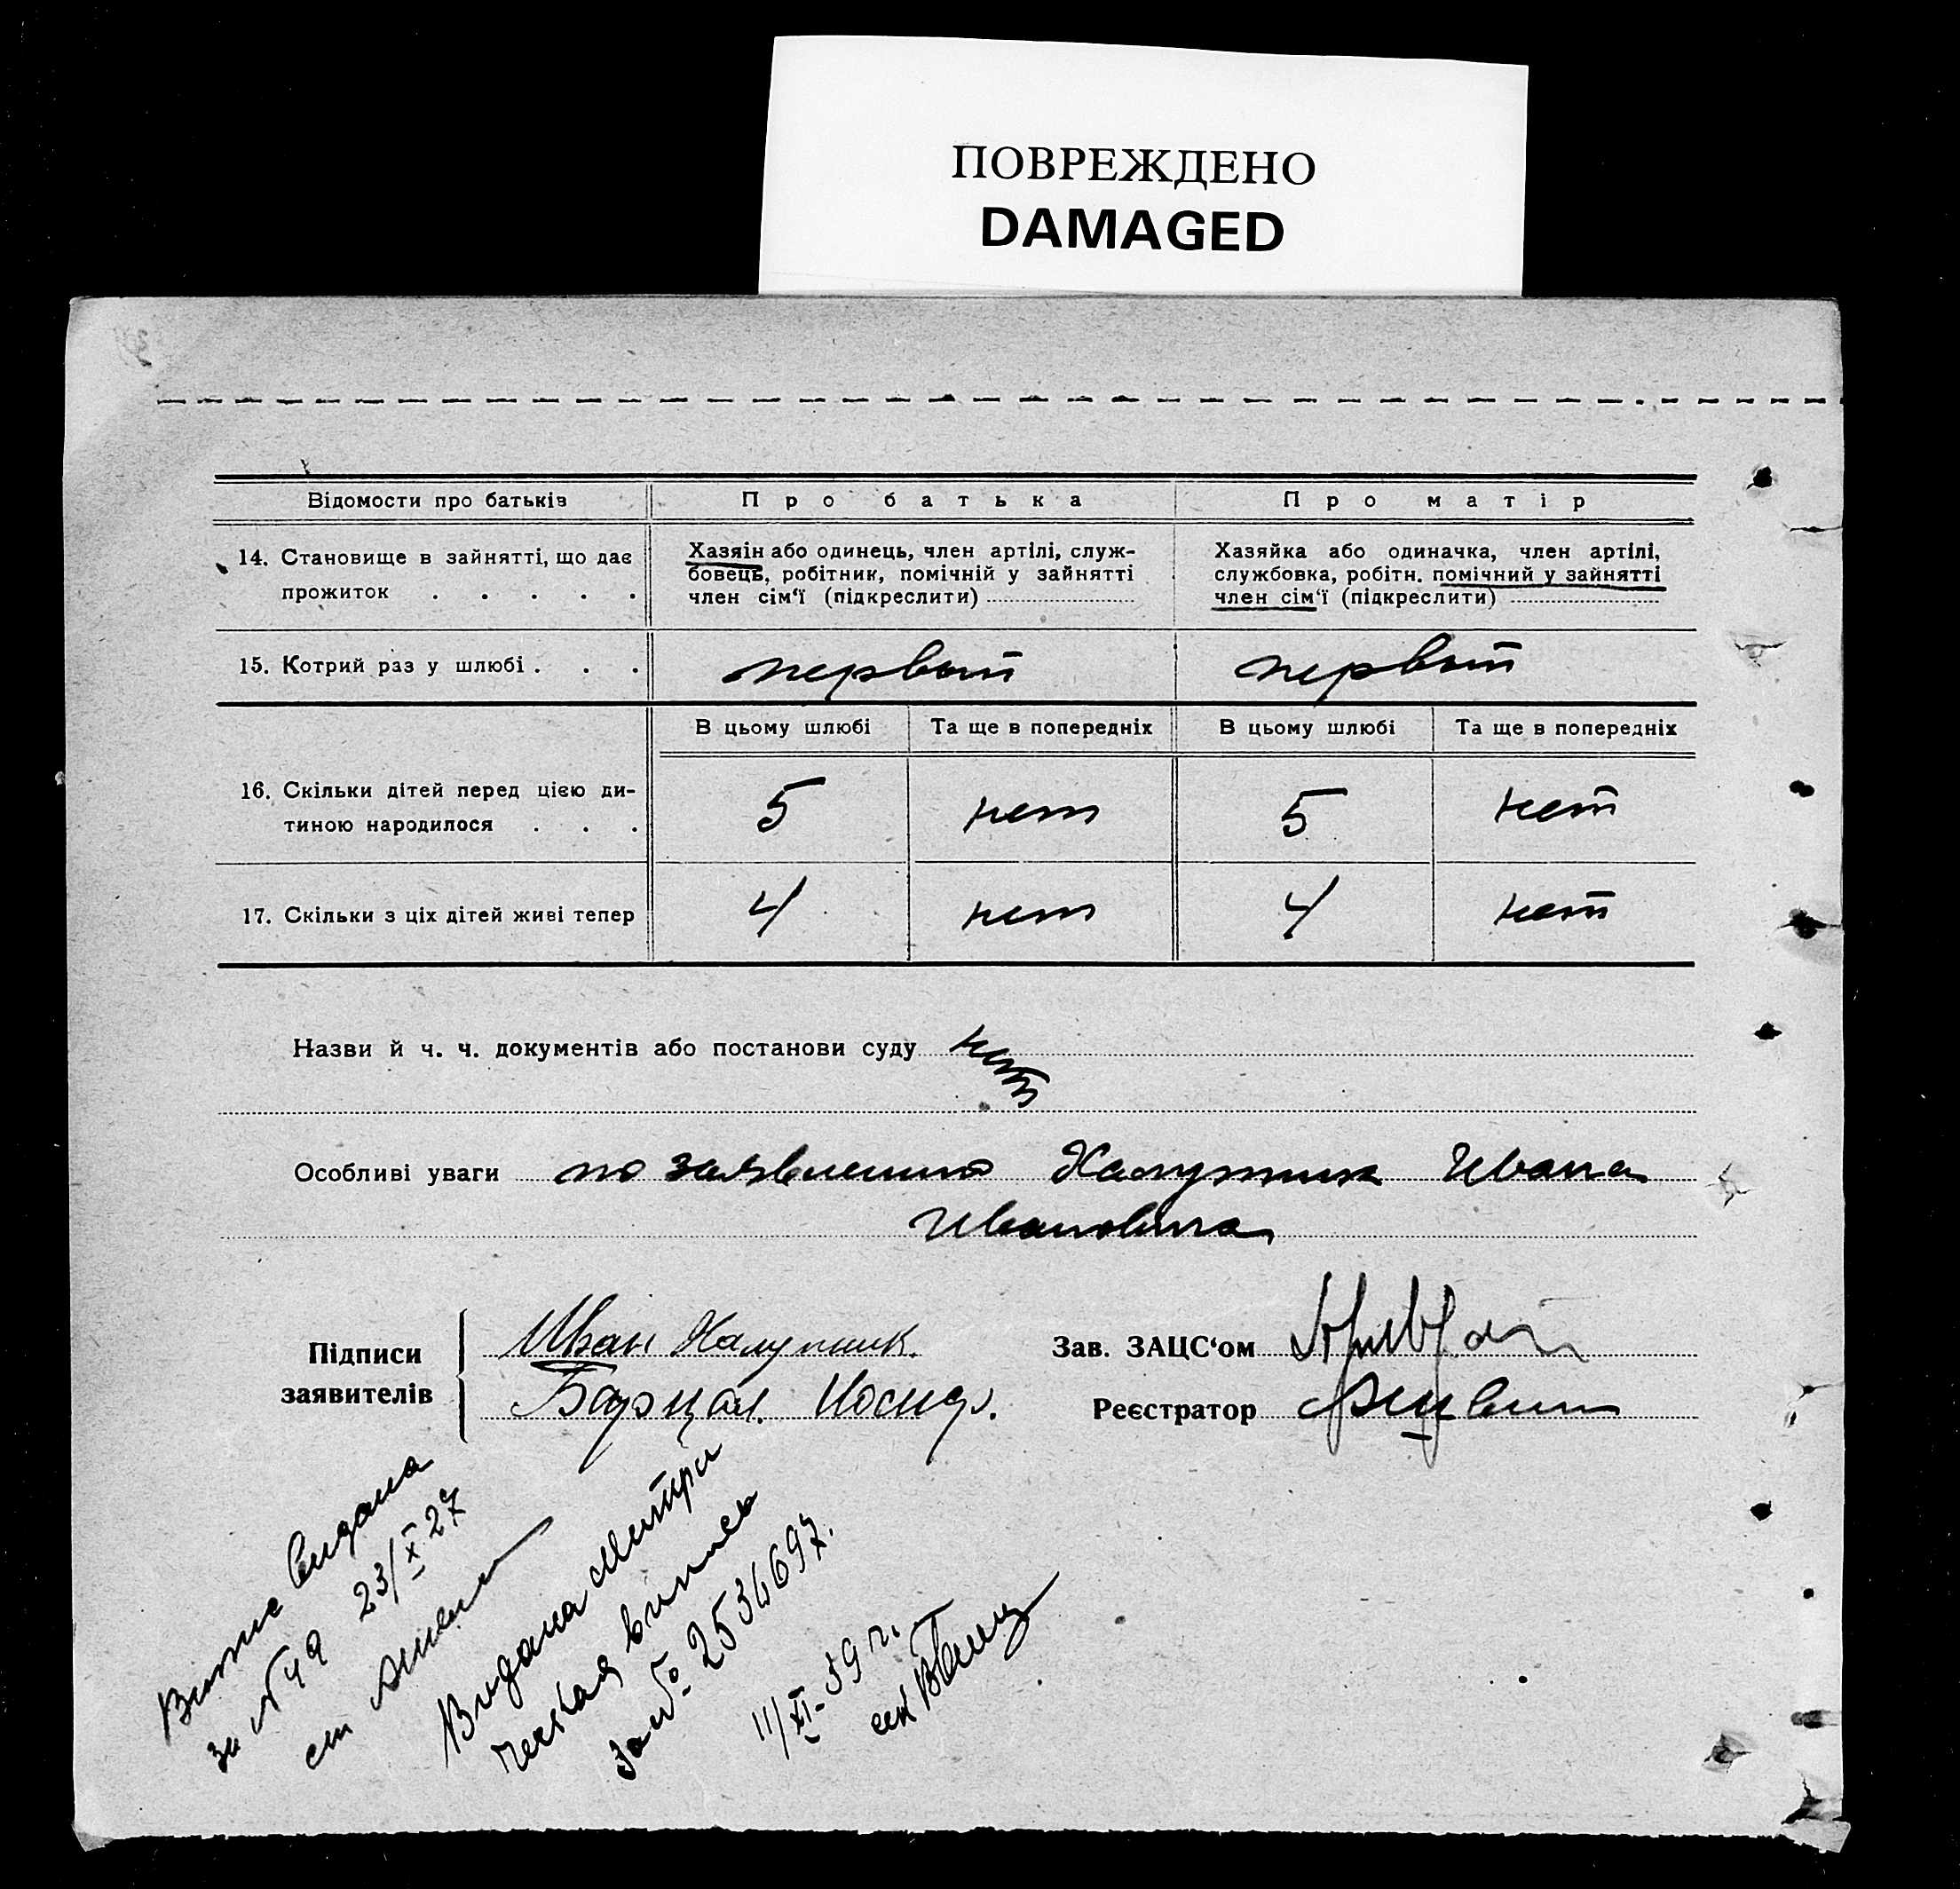 ПОВРЕЖДЕНО
DAMAGED
Відомости про батьків
Про батька
Про матір
14. Становище в зайнятті, що дає
прожиток . . . . .
Хазяін або одинець, член артілі, служ-
бовець, робітник, помічній у зайнятті
член сім'ї (підкреслити)
Хазяйка або одиначка, член артілі,
службовка, робітн. помічний у зайнятті
член сім'ї (підкреслити)
15. Котрий раз у шлюбі . . .
первый
первый
В цьому шлюбі
Та ще в попередніх
В цьому шлюбі
Та ще в попередніх
16. Скільки дітей перед цією ди-
тиною народилося . . .
5
нет
5
нет
17. Скільки з ціх дітей живі тепер
4
нет
4
нет
Назви й ч. ч. документів або постанови суду нет
Особливі уваги по заявлению Халупник Ивана
Ивановича
Підписи
заявителів
Иван Халупник.
Иосиф.
Зав. ЗАЦС'ом
Реєстратор
видана
за № 49 23/X 27
Видана метри
ческая випись
за № 2534697.
11/XI-39 г.